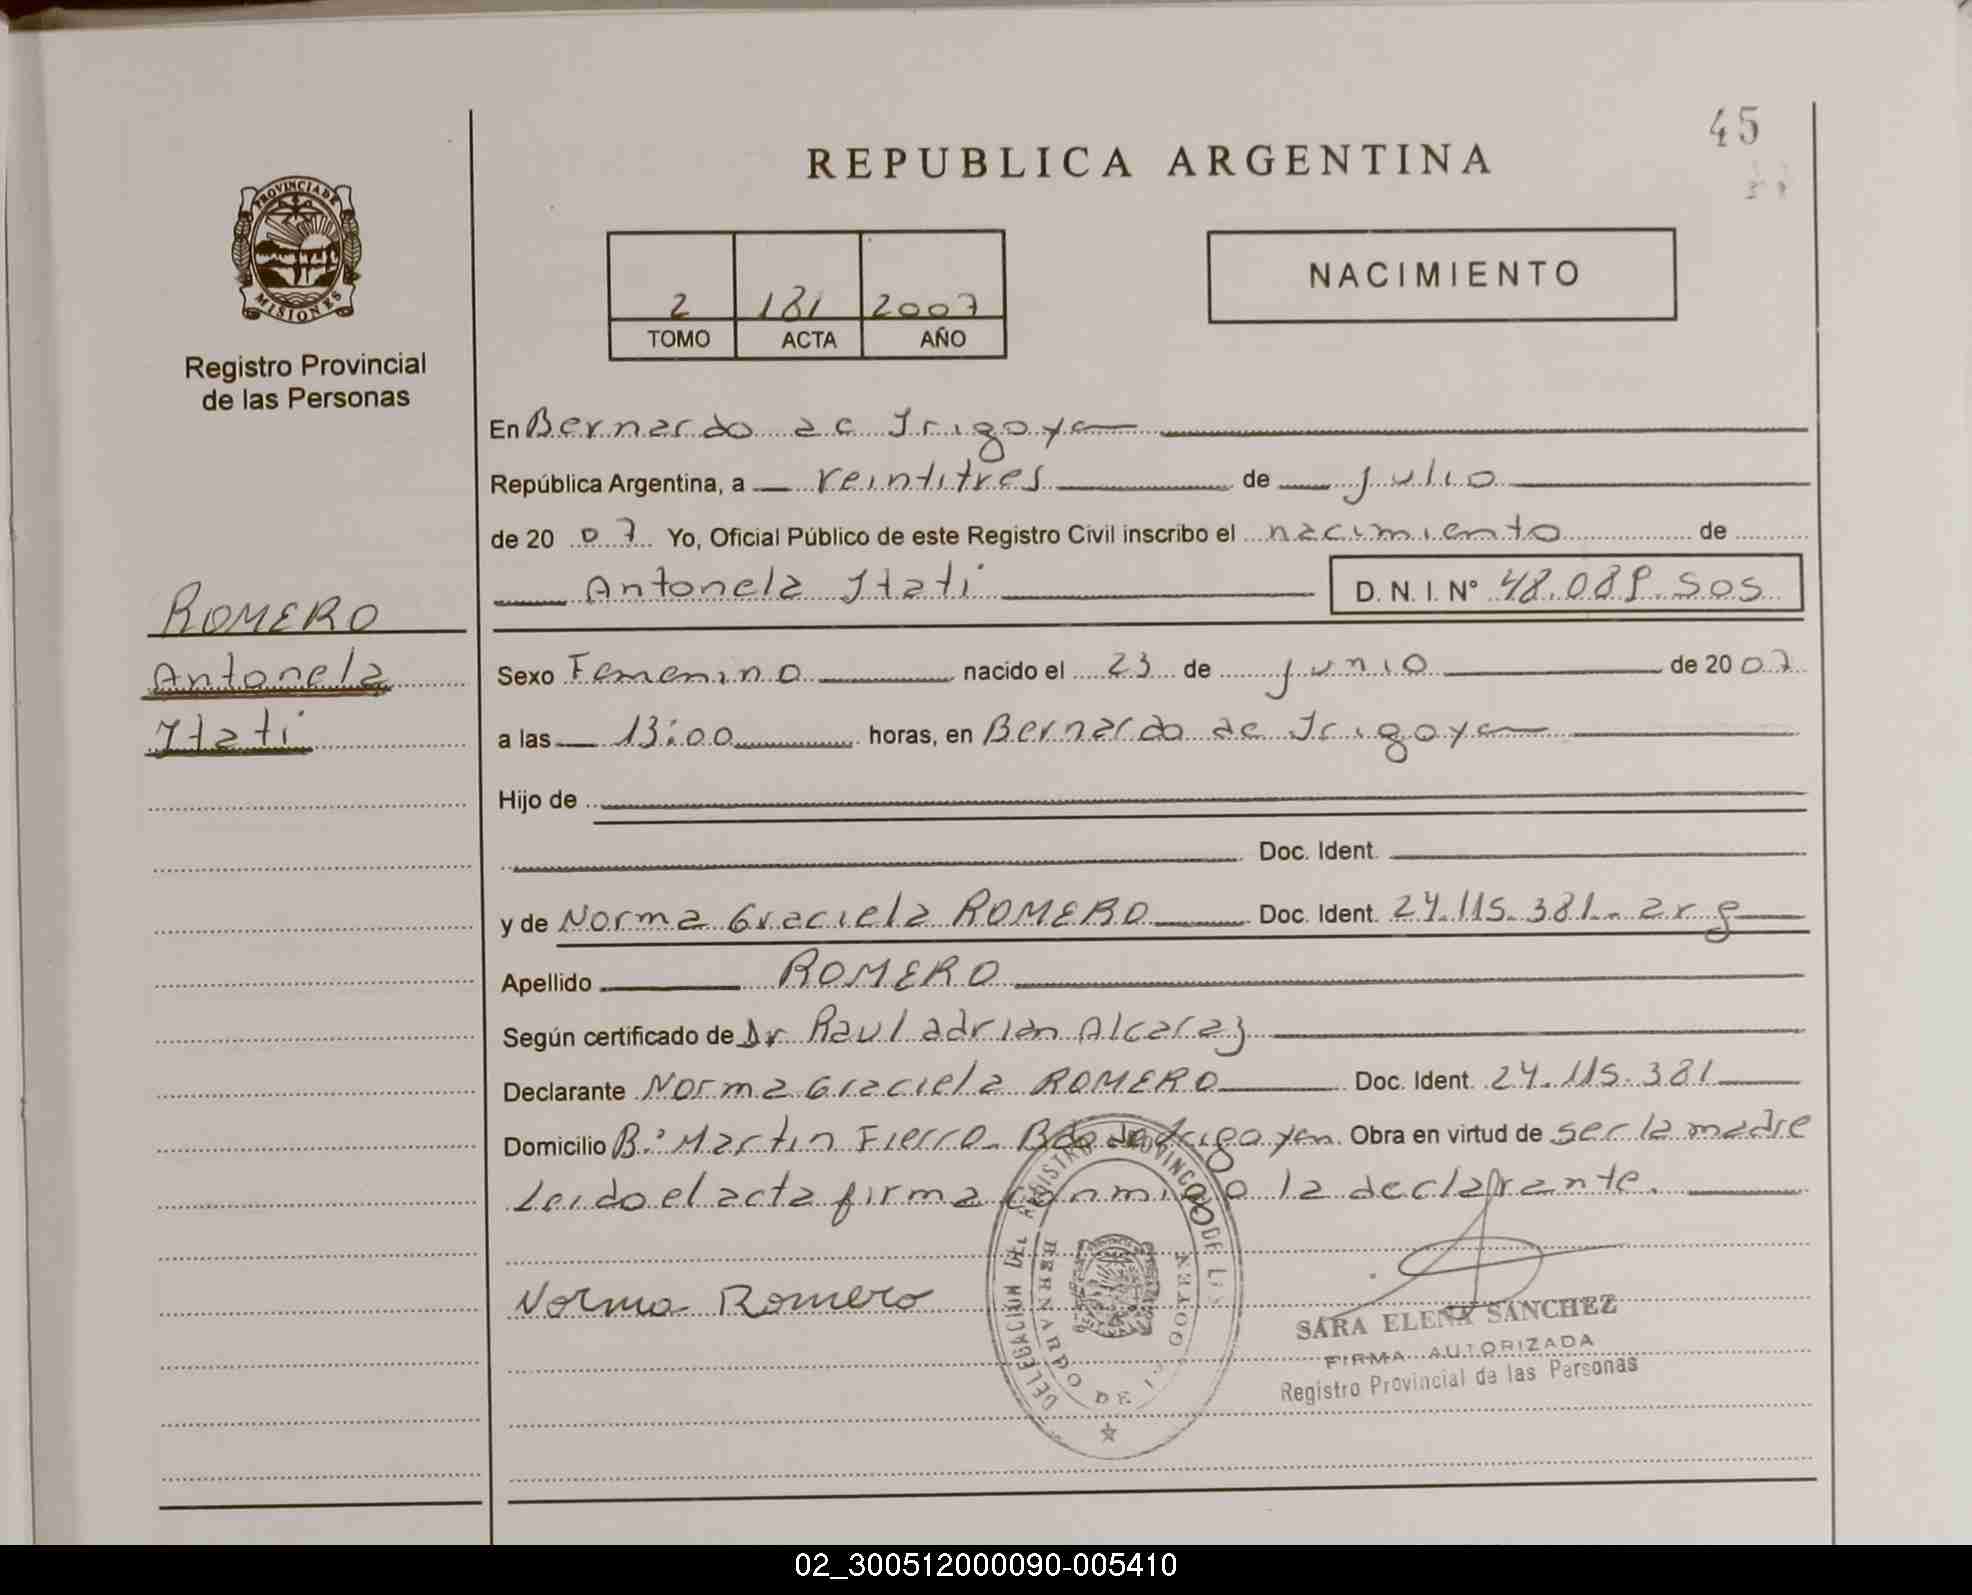 45
REPUBLICA ARGENTINA
PROVINCIA DE
MISIONES
Registro Provincial
de las Personas
2 181 2007
TOMO ACTA AÑO
NACIMIENTO
En Bernardo de Irigoyen
República Argentina, a veintitres de julio
de 20 07 Yo, Oficial Público de este Registro Civil inscribo el nacimiento de
Antonela Itati D. N. I. Nº 48.089.505
ROMERO
Antonela
Itati
Sexo Femenino nacido el 23 de junio de 20 07
a las 13:00 horas, en Bernardo de Irigoyen
Hijo de
Doc. Ident.
y de Norma Graciela ROMERO Doc. Ident. 24.115.381.. arg
Apellido ROMERO
Según certificado de Dr Raul adrian Alcaraz
Declarante Norma Graciela ROMERO Doc. Ident. 24.115.381
Domicilio B.º Martin Fierro. Bdo de Irigoyen. Obra en virtud de ser la madre
Leido el acta firma conmigo la declarante.
Norma Romero
DELEGACIÓN DEL REGISTRO PROVINCIAL DE LAS
BERNARDO DE
SARA ELENA SANCHEZ
FIRMA AUTORIZADA
Registro Provincial de las Personas
02_300512000090-005410